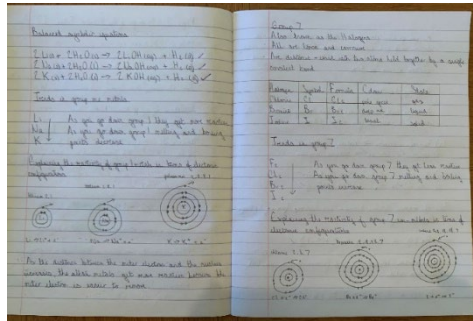 Balanced symbolic equations
2Li(s) + 2H₂O(l) → 2LiOH(aq) + H₂(g) ✓
2Na(s) + 2H₂O(l) → 2NaOH(aq) + H₂(g) ✓
2K(s) + 2H₂O(l) → 2KOH(aq) + H₂(g) ✓
Trends in group one metals
Li As you go down group 1 they get more reactive
Na As you go down group 1 melting and boiling
K points decrease
Explaining the reactivity of group 1 metals in terms of electronic
configuration
As the distance between the outer electron and the nucleus
increases, the alkali metals get more reactive because the
outer electron is easier to remove
Group 7
Also known as the Halogens
All are toxic and corrosive
Are diatomic - exist as two atoms held together by a single
covalent bond
Halogen Symbol Formula Colour State
Chlorine Cl Cl₂ gas
Bromine Br Br₂ liquid
Iodine I I₂ solid
Trends in group 7
F₂ As you go down group 7 they get less reactive
Cl₂ As you go down group 7 melting and boiling
Br₂ points increase
I₂
Explaining the reactivity of group 7 in terms of
electronic configurations